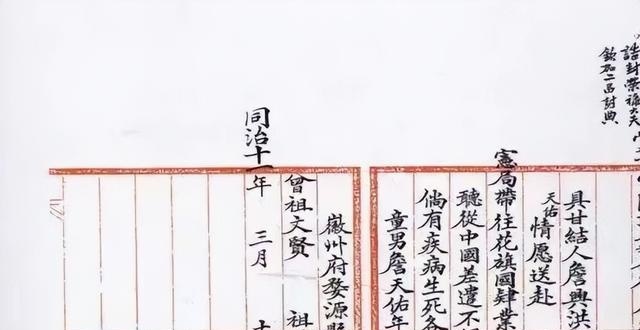 誥封榮禄大夫
欽加二品封典
具甘結人詹興洪
天佑情愿送赴
憲局帶往花旗國肄業
聽從中國差遣不
倘有疾病生死各
童男詹天佑年
徽州府婺源縣
曾祖文賢 祖
同治十一年 三月 十